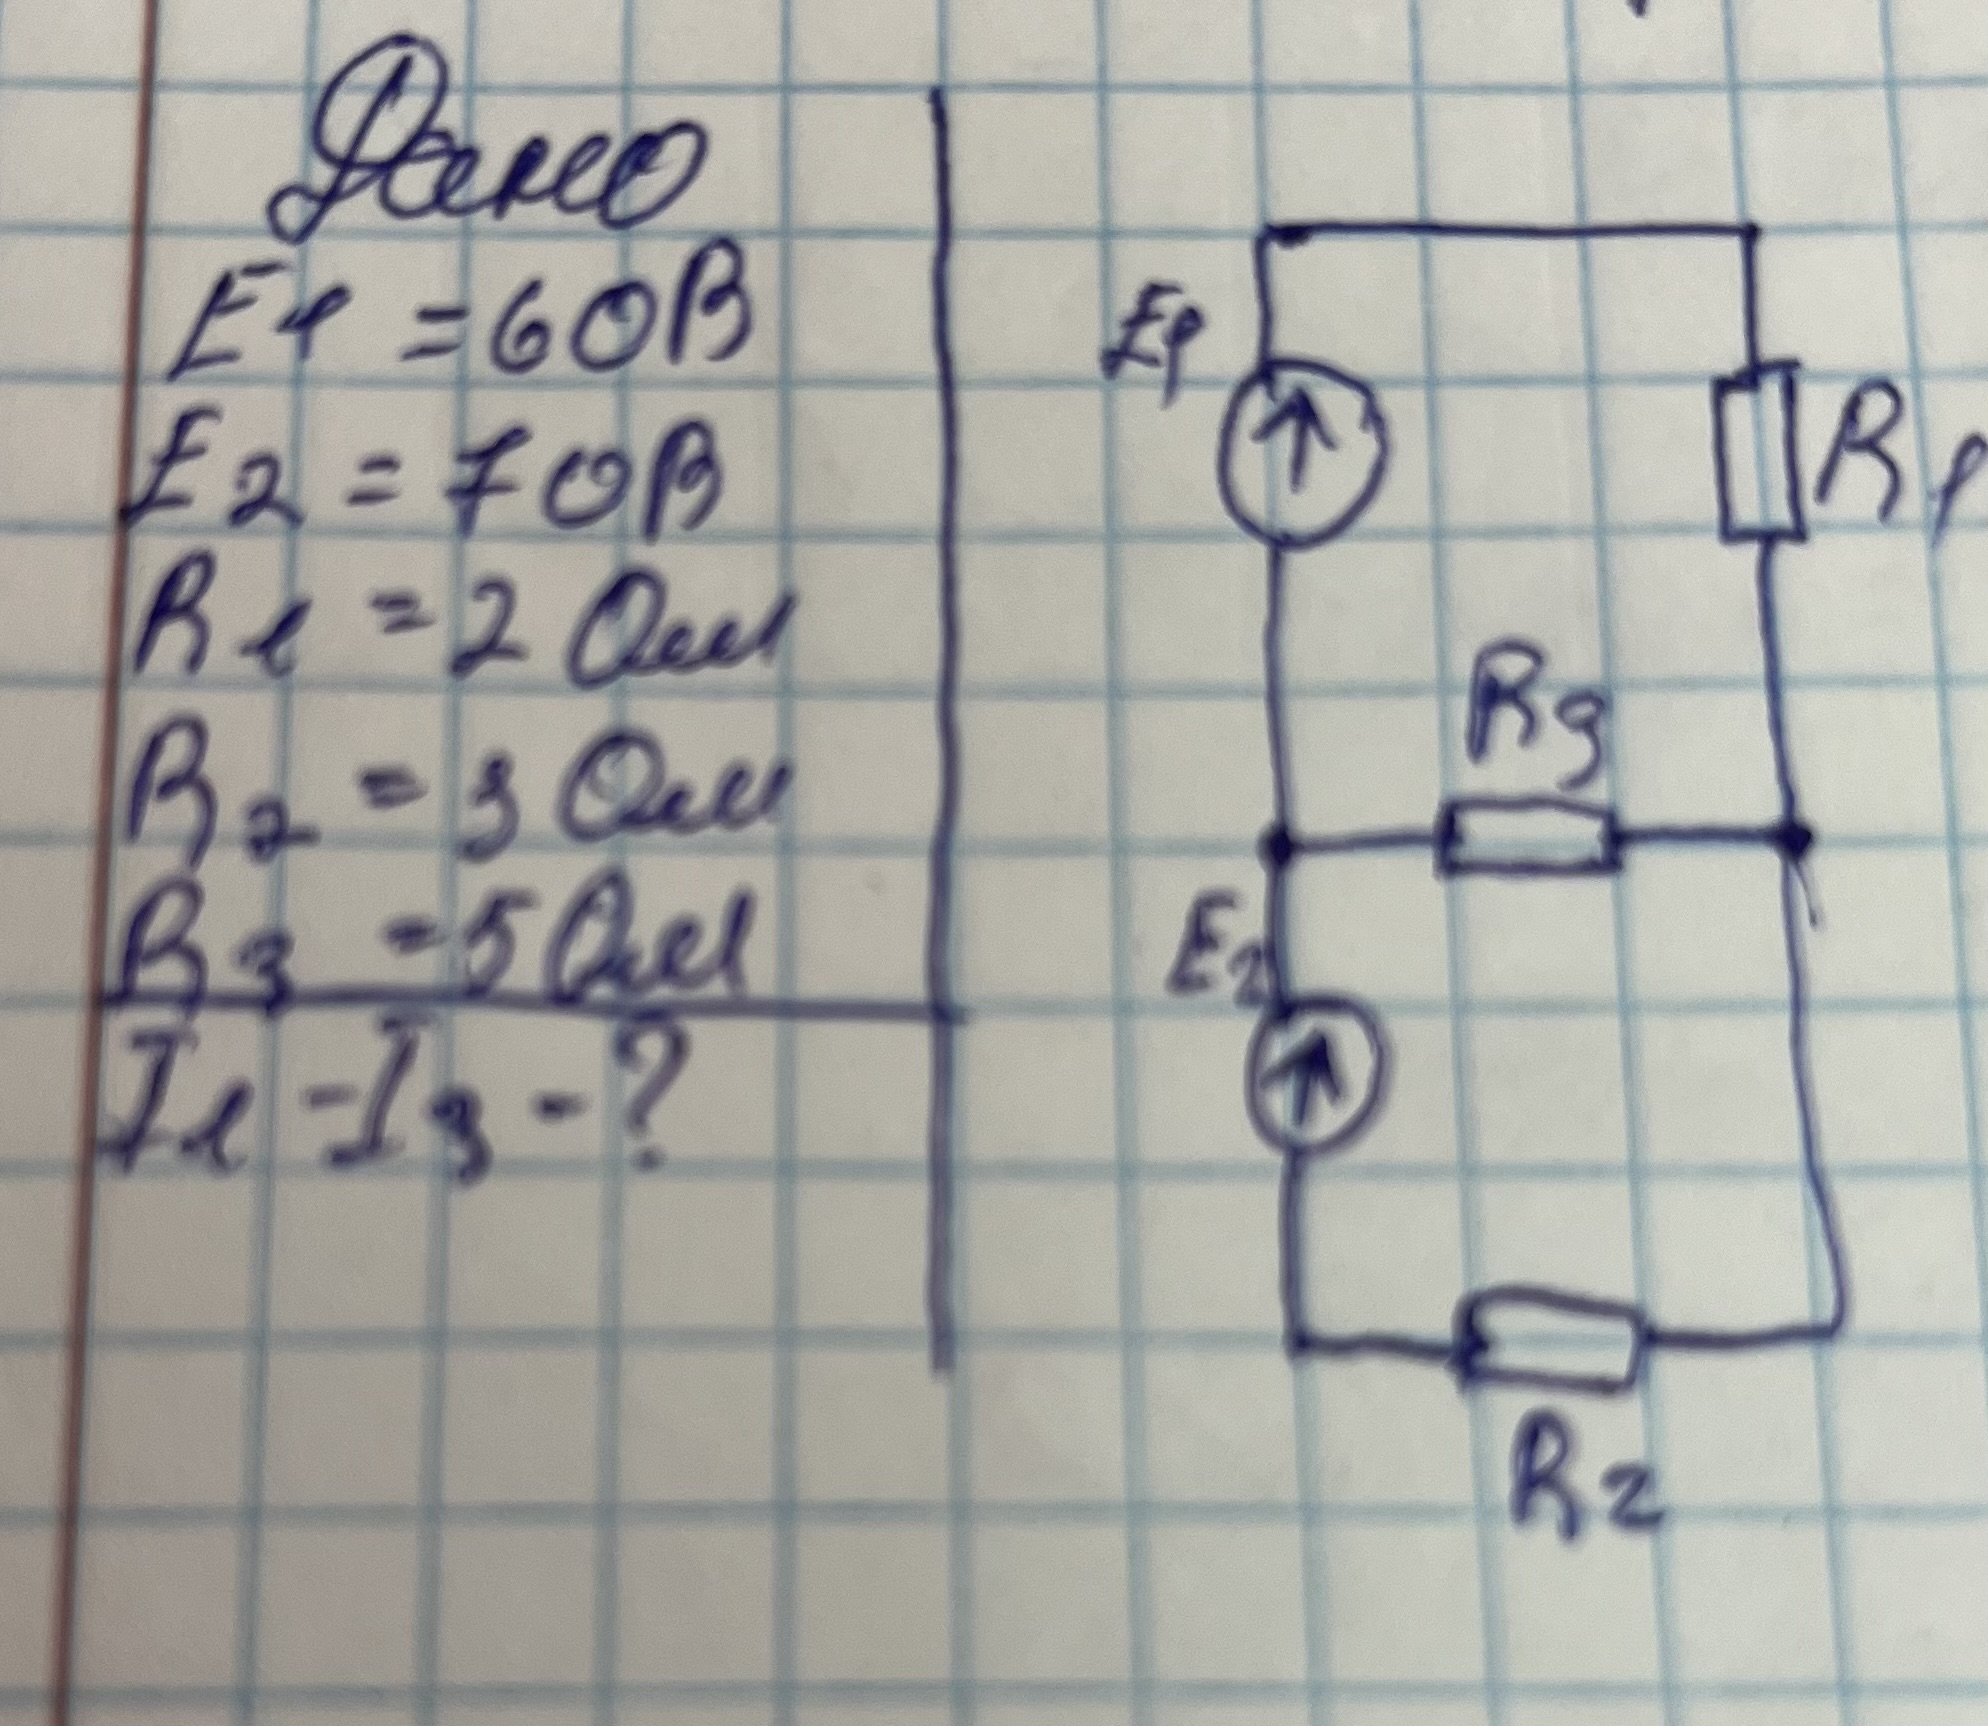 Дано
E1 = 60В
E2 = 70В
R1 = 2 Ом
R2 = 3 Ом
R3 = 5 Ом
I1 - I3 - ?
E1
R1
R3
E2
R2